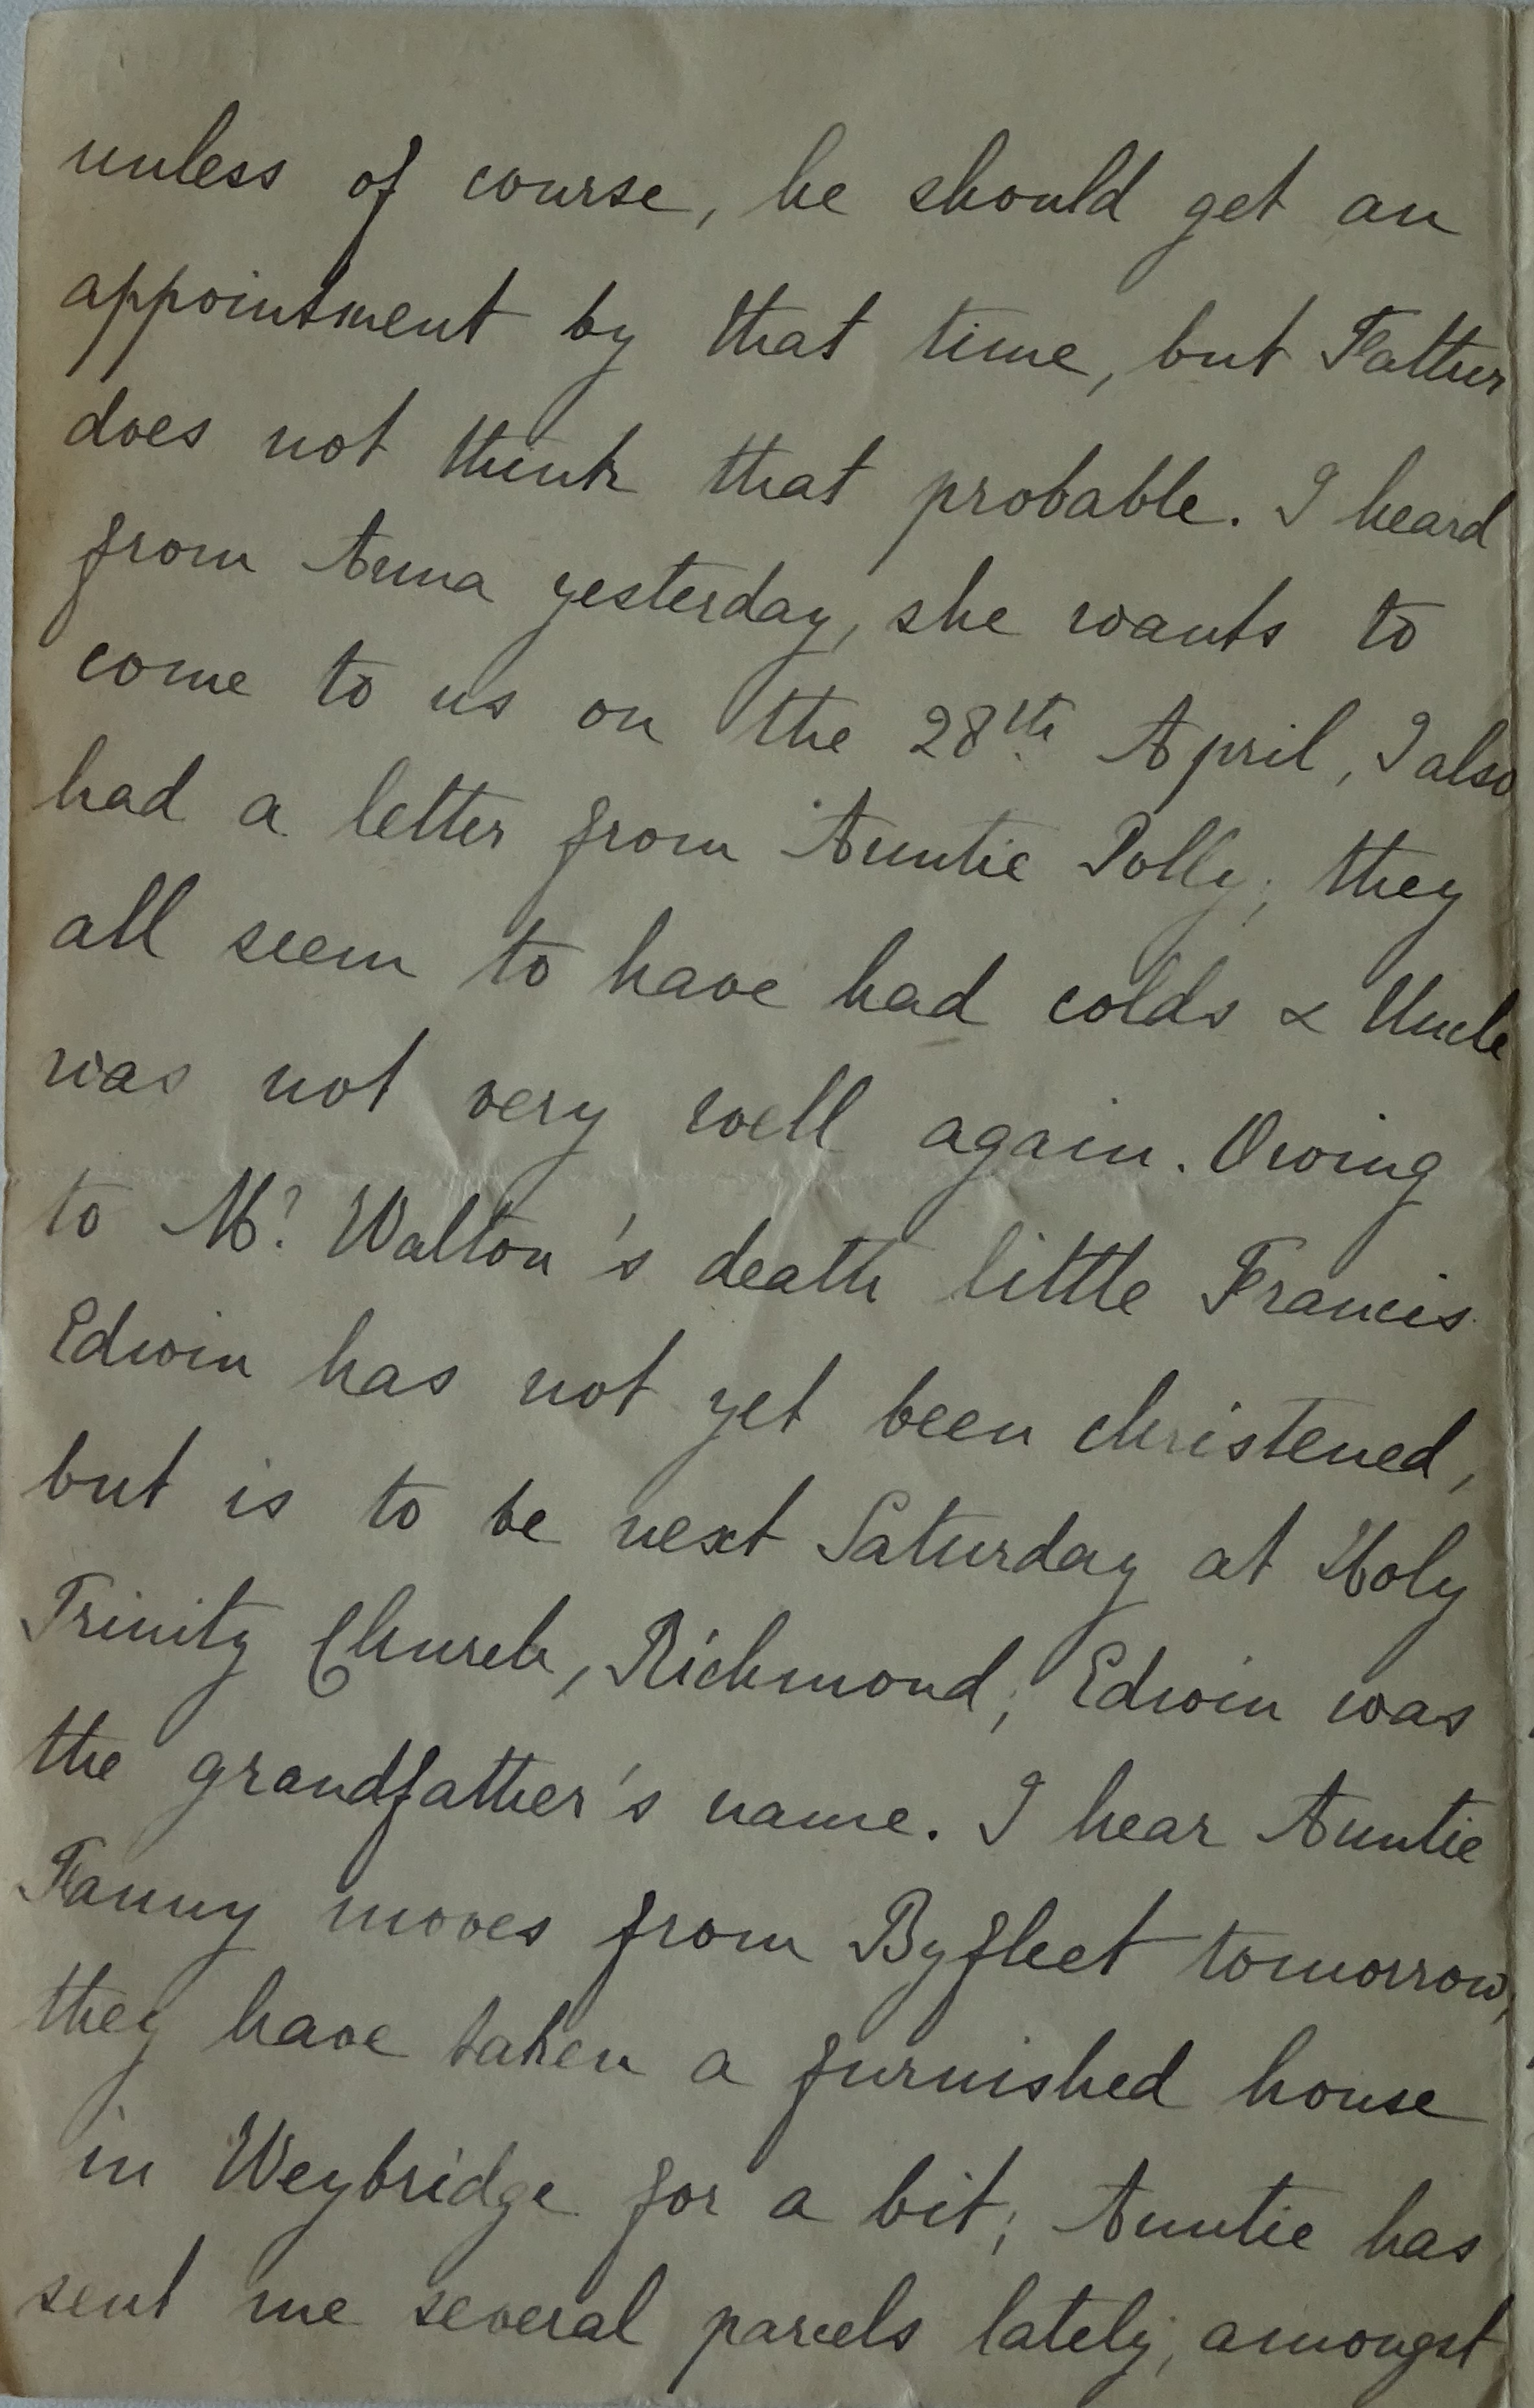 unless of course, he should get an
appointment by that time, but Father
does not think that probable. I heard
from Anna yesterday, she wants to
come to us on the 28th April, I also
had a letter from Auntie Polly; they
all seem to have had colds & Uncle
was not very well again. Owing
to Mr. Walton's death little Francis
Edwin has not yet been christened,
but is to be next Saturday at Holy
Trinity Church, Richmond; Edwin was
the grandfather's name. I hear Auntie
Fanny moves from Byfleet tomorrow,
they have taken a furnished house
in Weybridge for a bit; Auntie has
sent me several parcels lately, amongst